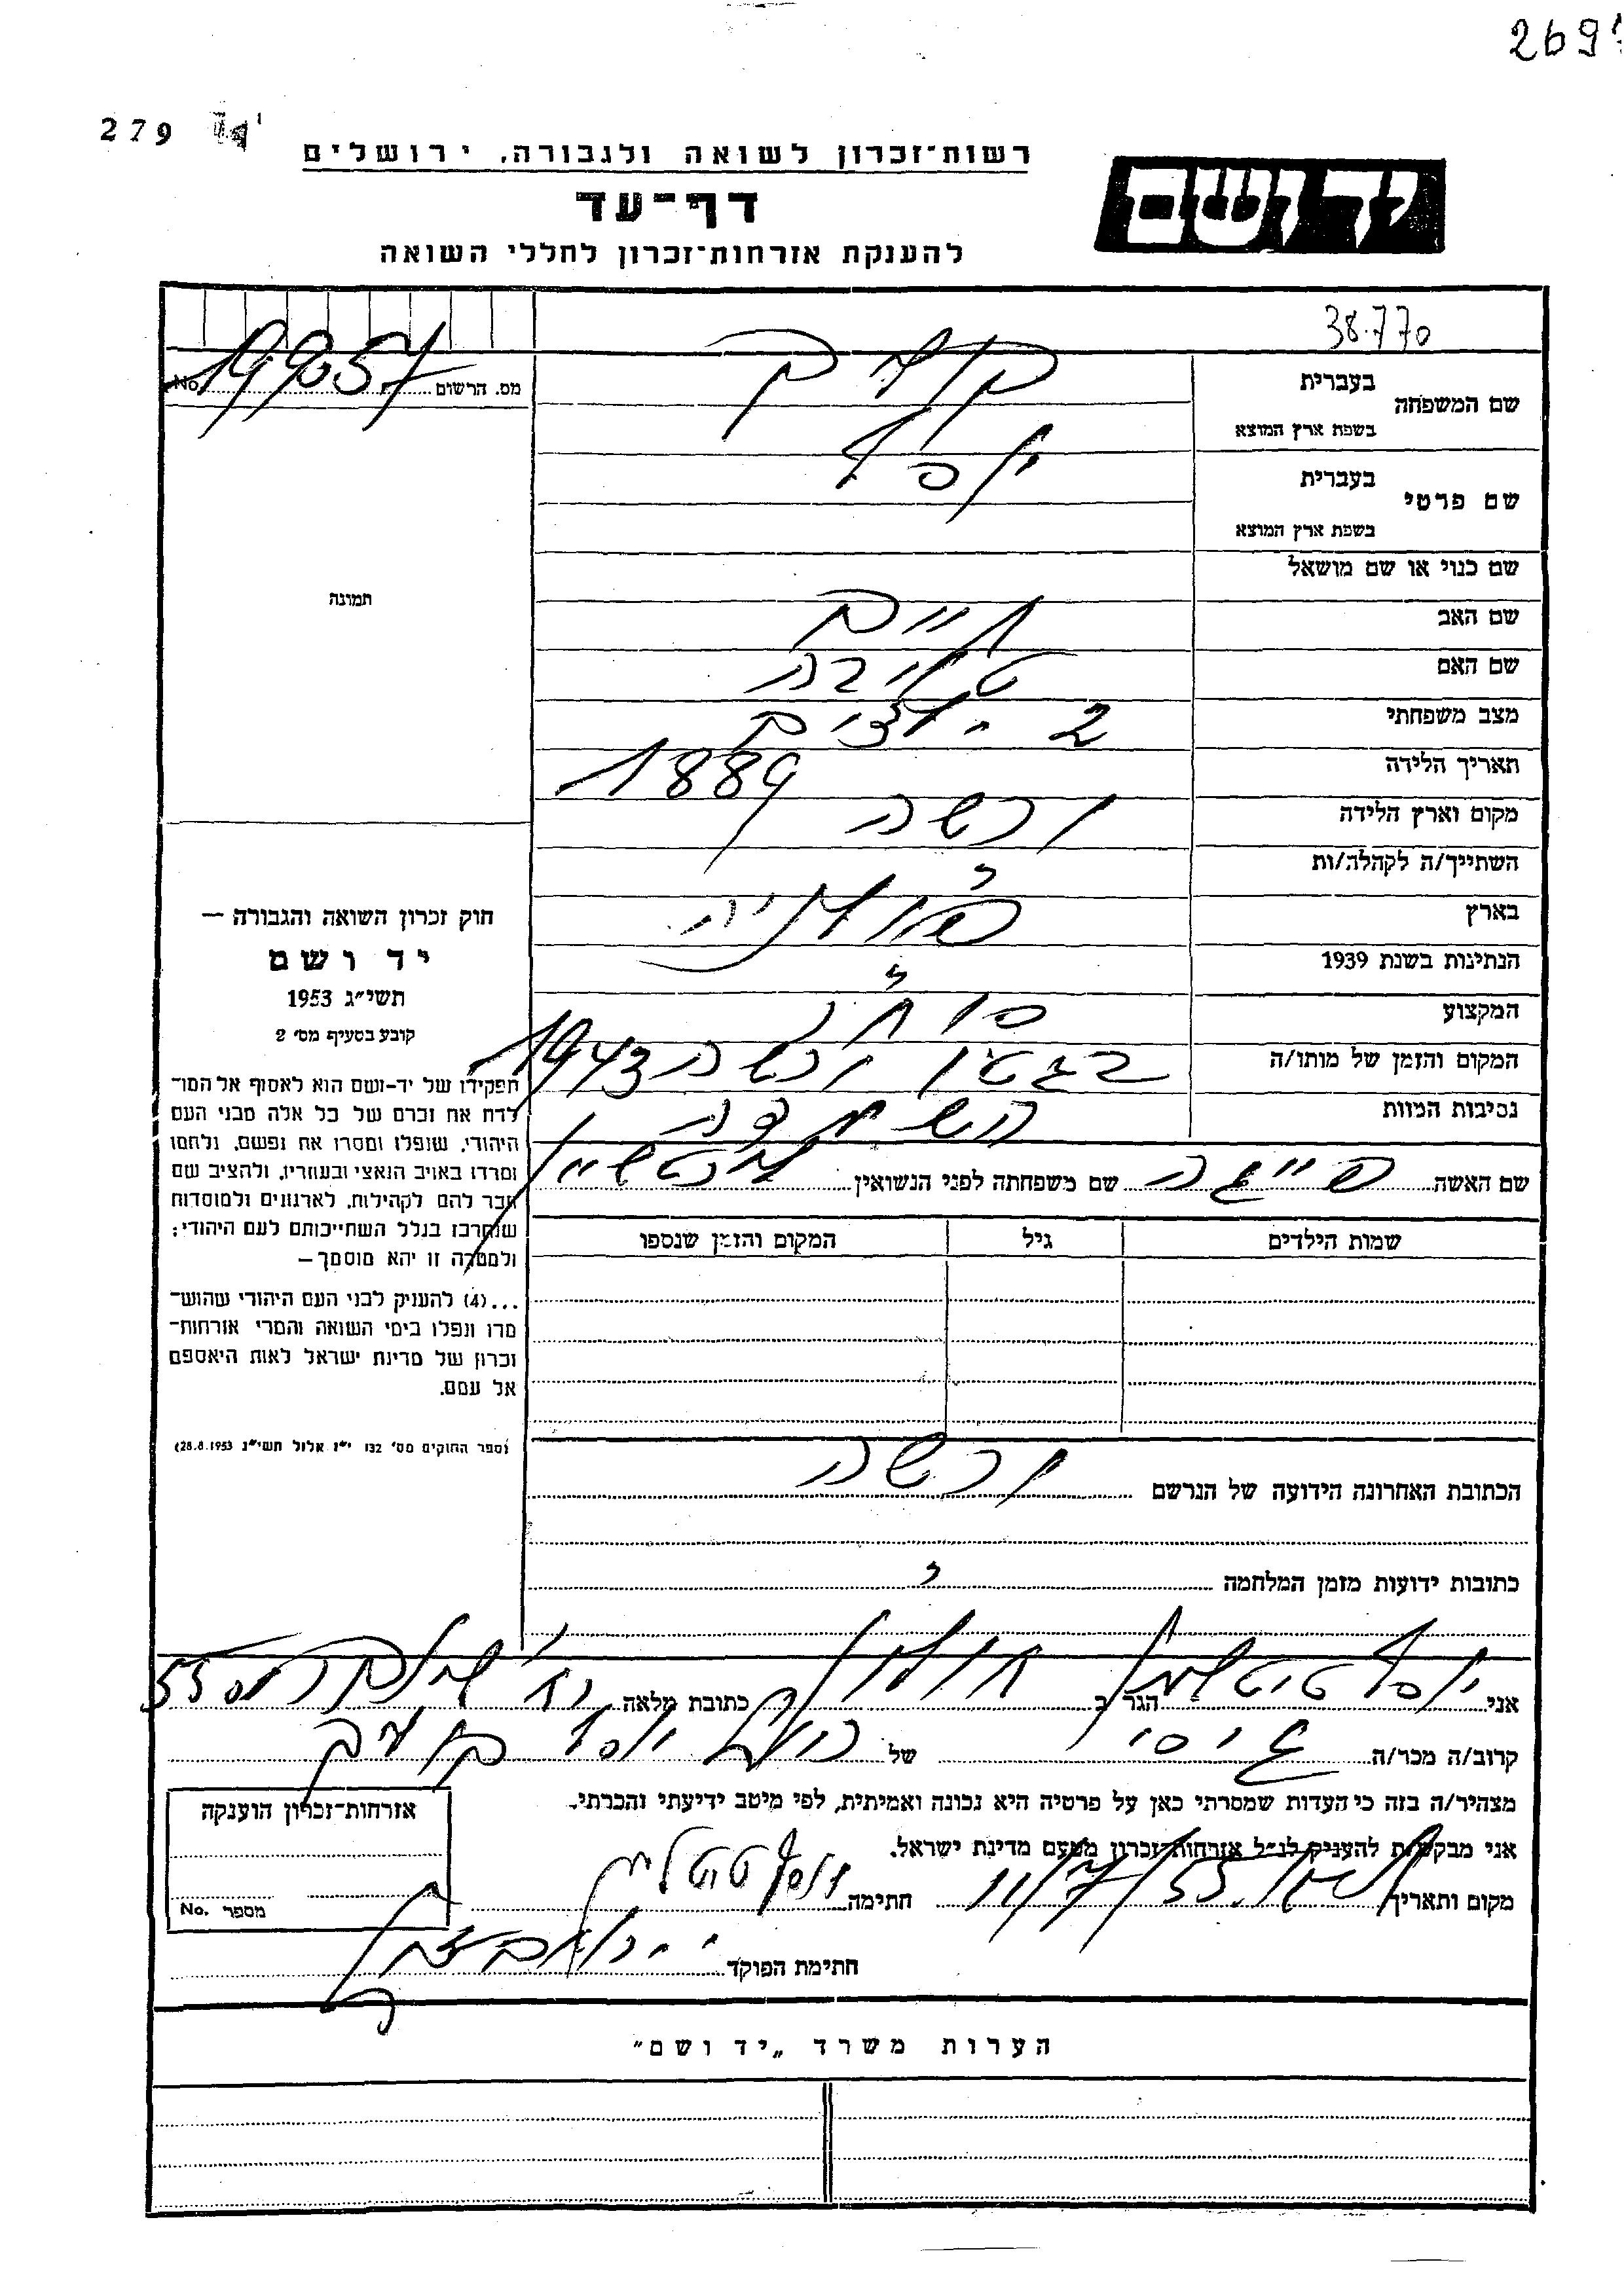 269
279
רשות־זכרון לשואה ולגבורה, ירושלים
יד ושם
דף־עד
להענקת אזרחות־זכרון לחללי השואה
38.770
שם המשפחה
בעברית
בשפת ארץ המוצא
מס. הרשום No.
שם פרטי
בעברית
יוסף
בשפת ארץ המוצא
תמונה
שם כנוי או שם מושאל
שם האב חיים
שם האם טויבה
מצב משפחתי 2 ילדים
תאריך הלידה 1889
מקום וארץ הלידה ורשה
השתייך/ה לקהלה/ות
בארץ פולניה
הנתינות בשנת 1939
המקצוע סוחר
המקום והזמן של מותו/ה בגטו ורשה 1943
נסיבות המוות השמדה
חוק זכרון השואה והגבורה —
יד ושם
תשי״ג 1953
קובע בסעיף מס׳ 2
תפקידו של יד־ושם הוא לאסוף אל המו־
לדת את זכרם של כל אלה מבני העם
היהודי, שנפלו ומסרו את נפשם, נלחמו
ומרדו באויב הנאצי ובעוזריו, ולהציב שם
וזכר להם לקהילות, לארגונים ולמוסדות
שנחרבו בגלל השתייכותם לעם היהודי;
ולמטרה זו יהא מוסמך —
...(4) להעניק לבני העם היהודי שהוש־
מדו ונפלו בימי השואה והמרי אזרחות־
זכרון של מדינת ישראל לאות היאספם
אל עמם.
(ספר החוקים מס׳ 132 י״ז אלול תשי״ג 28.8.1953)
שם האשה פייגה שם משפחתה לפני הנשואין
שמות הילדים גיל המקום והזמן שנספו
הכתובת האחרונה הידועה של הנרשם ורשה
כתובות ידועות מזמן המלחמה
אני יוסף הגר ב חולון כתובת מלאה רח׳ 55
קרוב/ה מכר/ה גיסי של יוסף
מצהיר/ה בזה כי העדות שמסרתי כאן על פרטיה היא נכונה ואמיתית, לפי מיטב ידיעתי והכרתי.
אני מבקש/ת להעניק לנ״ל אזרחות־זכרון מטעם מדינת ישראל.
מקום ותאריך 11/7/55 חתימה יוסף
חתימת הפוקד
אזרחות־זכרון הוענקה
מספר No.
הערות משרד „יד ושם״